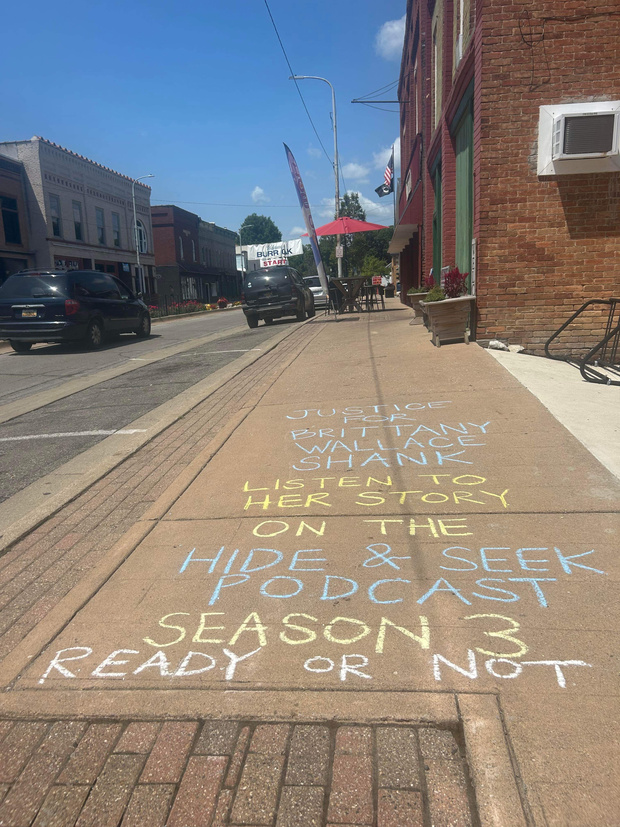 BURR OAK
START
JUSTICE
FOR
BRITTANY
WALLACE
SHANK
LISTEN TO
HER STORY
ON THE
HIDE & SEEK
PODCAST
SEASON 3
READY OR NOT